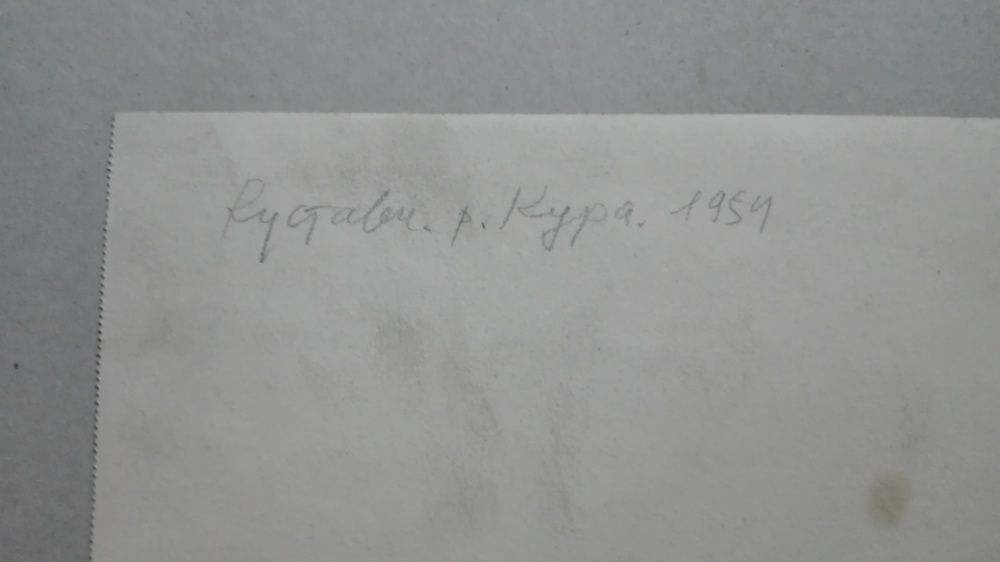 Рустави. р. Кура. 1954